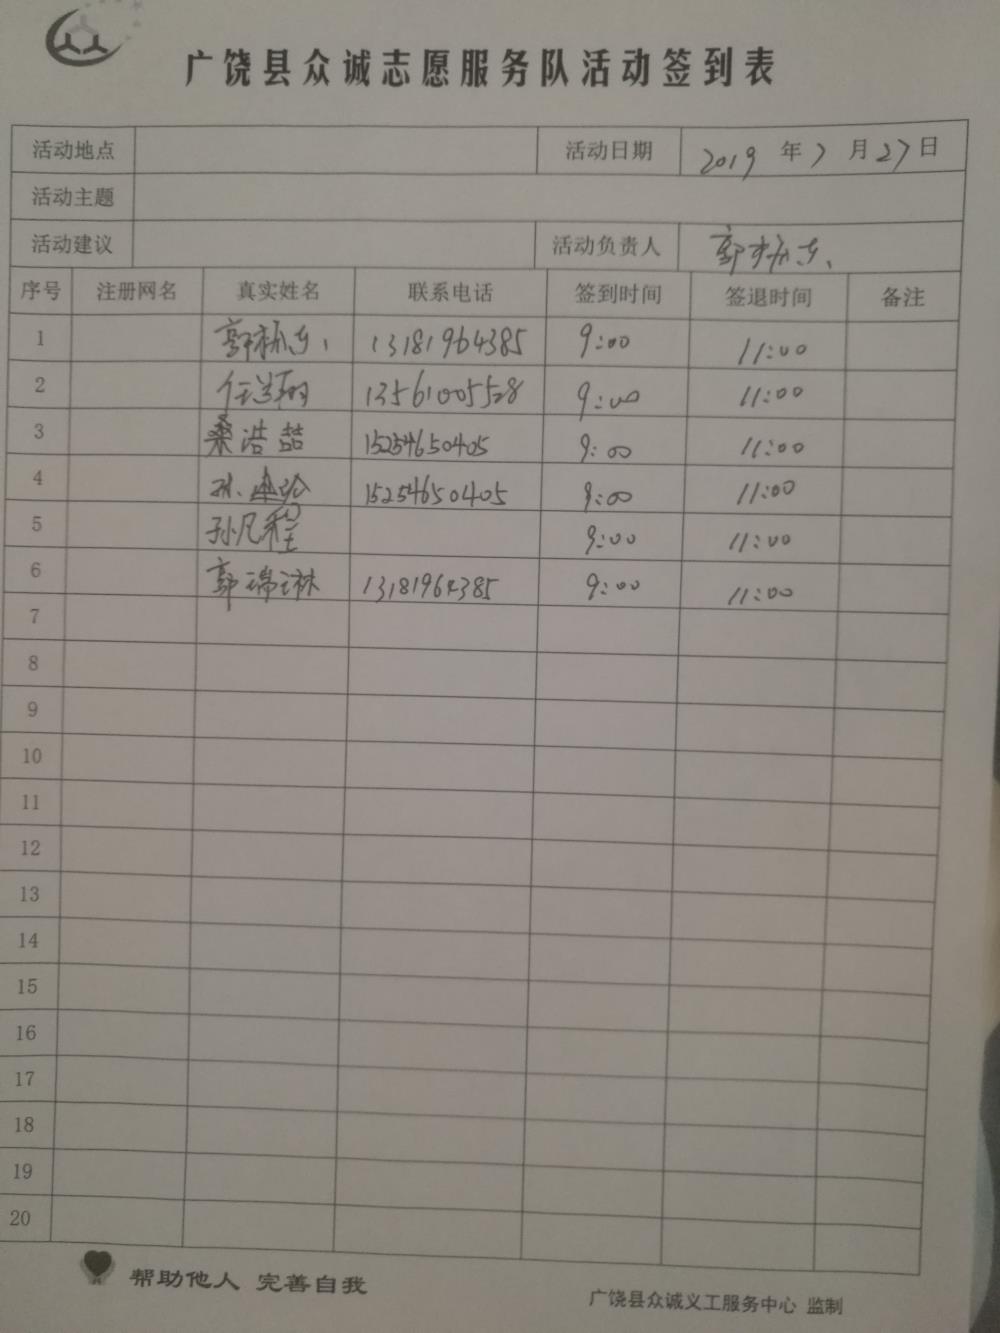 广饶县众诚志愿服务队活动签到表
活动地点 活动日期 2019 年 7 月 27 日
活动主题
活动建议 活动负责人 郭树东
序号 注册网名 真实姓名 联系电话 签到时间 签退时间 备注
1 郭树东 13181964385 9:00 11:00
2 任 翔 13561005528 9:00 11:00
3 桑浩喆 15254650405 9:00 11:00
4 孙 15254650405 9:00 11:00
5 孙凡程 9:00 11:00
6 郭瑞琳 13181964385 9:00 11:00
7
8
9
10
11
12
13
14
15
16
17
18
19
20
帮助他人 完善自我
广饶县众诚义工服务中心 监制